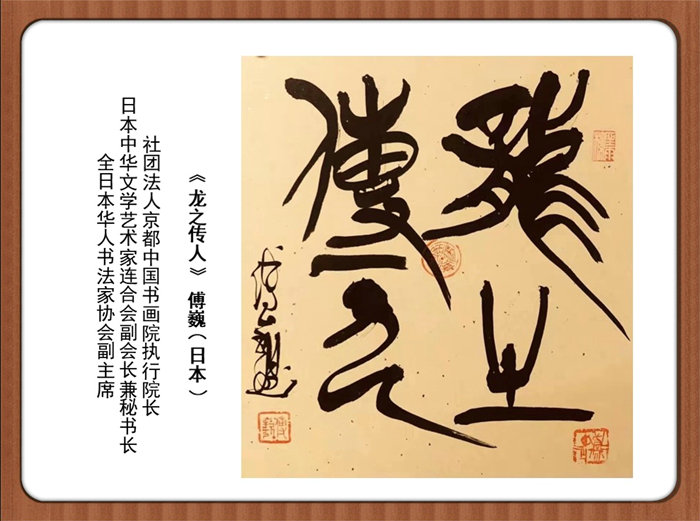 龍之
傳人
《龙之传人》 傅巍(日本)
社团法人京都中国书画院执行院长
日本中华文学艺术家连合会副会长兼秘书长
全日本华人书法家协会副主席